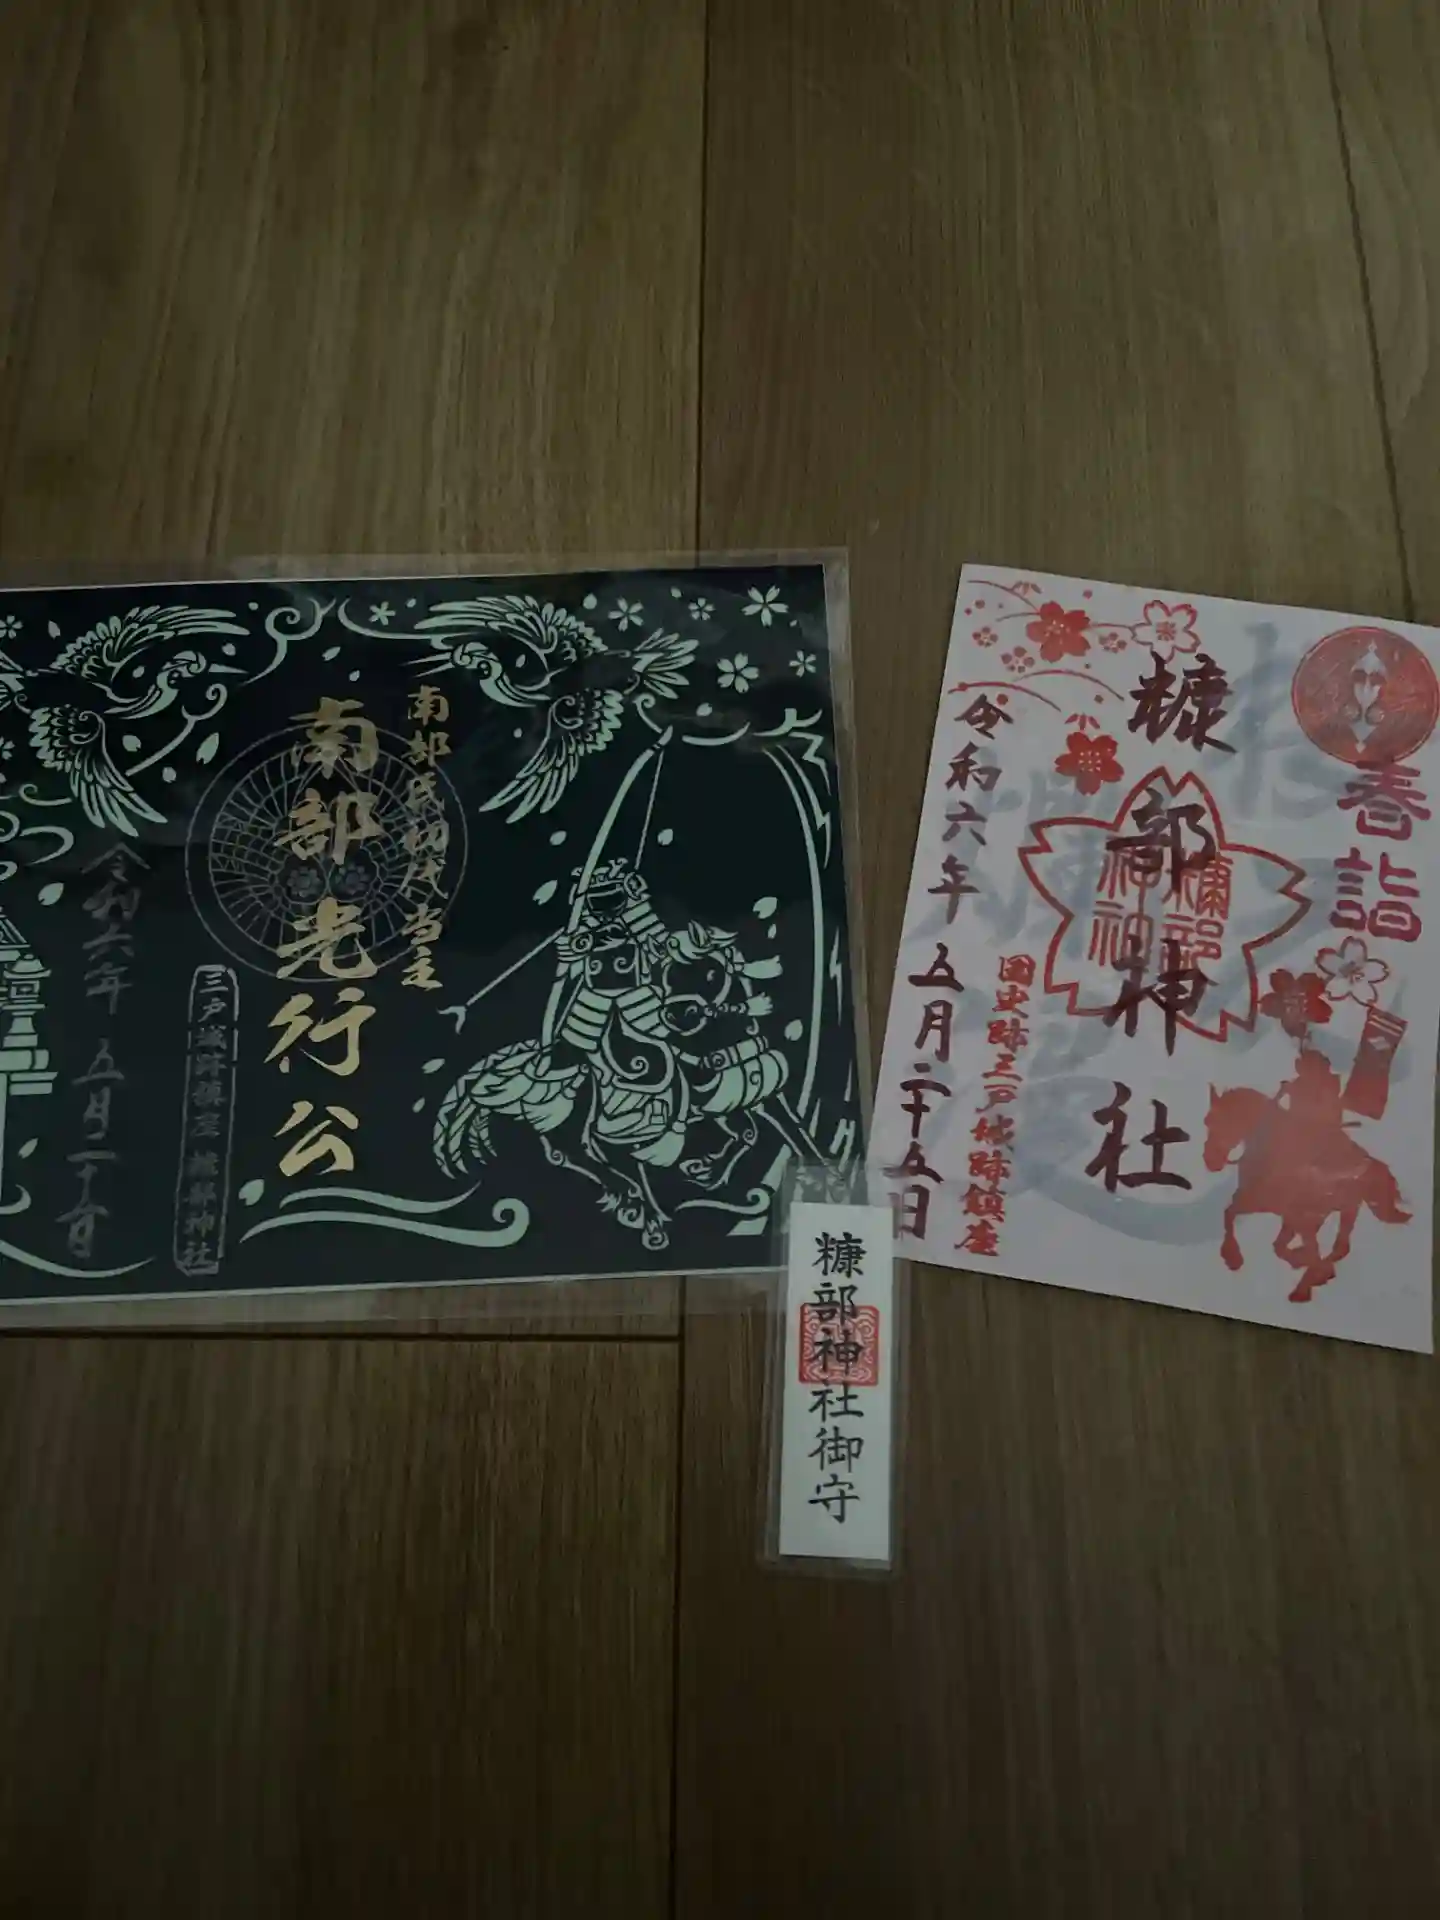 南部氏初代当主
南部光行公
三戸城跡鎮座 糠部神社
令和六年 五月二十五日
春詣
糠部神社
糠部
神社
國史跡三戸城跡鎮座
令和六年 五月二十五日
糠部神社御守